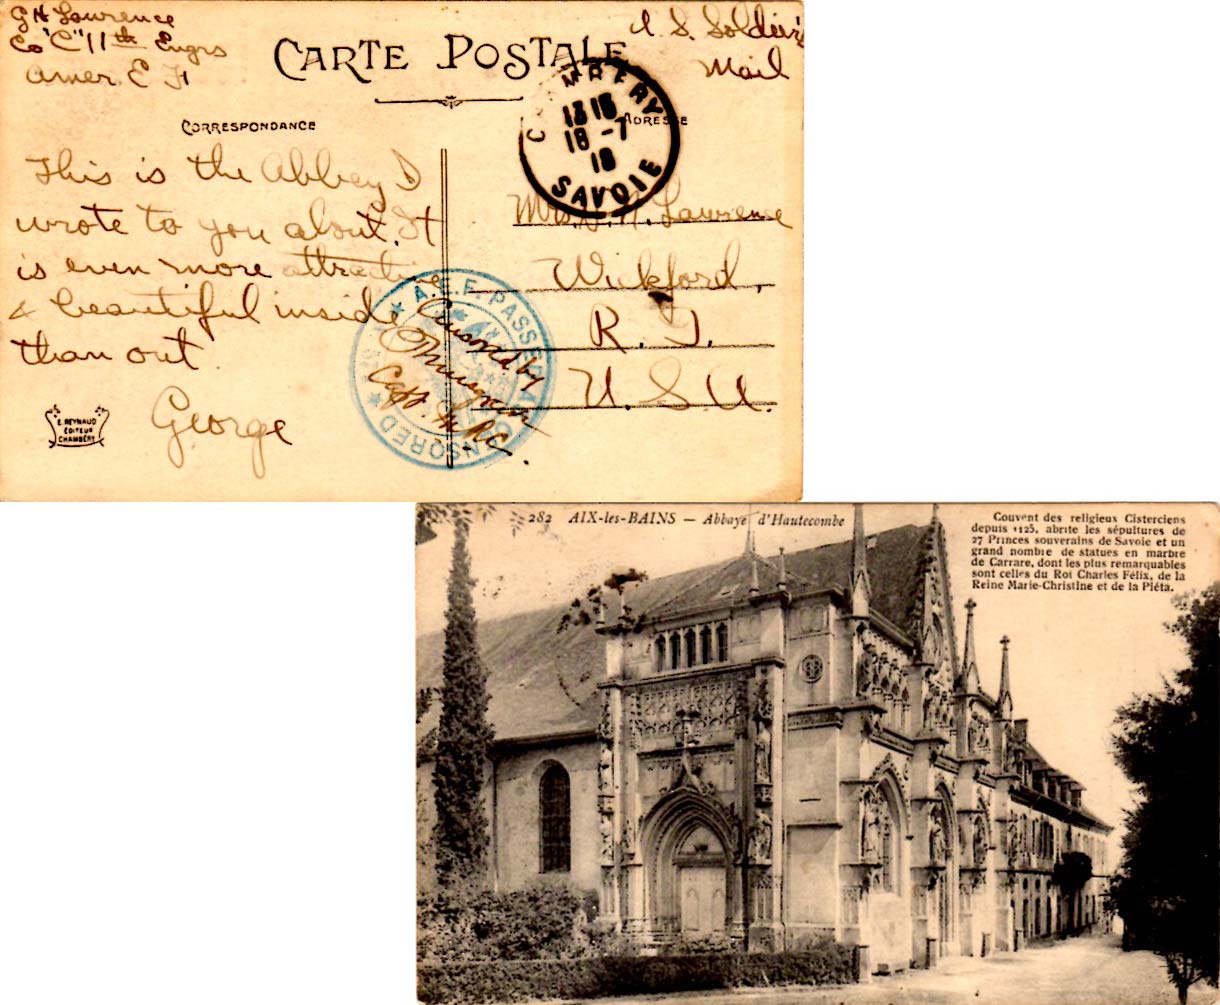 G H Lawrence
Co "C" 11th Engrs
Amer. E F
CARTE POSTALE
U. S. Soldier's
Mail
CORRESPONDANCE
ADRESSE
CHAMBERY
13 15
18 -7
18
SAVOIE
This is the Abbey I
wrote to you about. It
is even more attractive
& beautiful inside
than out.
George
Mrs. G. H. Lawrence
Wickford,
R. I.
U. S. A.
A.E.F. PASSED
CENSORED
Censored by
Capt. M R C.
E. REYNAUD
ÉDITEUR
CHAMBÉRY
282 AIX-les-BAINS — Abbaye d'Hautecombe
Couvent des religieux Cisterciens
depuis 1125, abrite les sépultures de
27 Princes souverains de Savoie et un
grand nombre de statues en marbre
de Carrare, dont les plus remarquables
sont celles du Roi Charles Félix, de la
Reine Marie-Christine et de la Piéta.